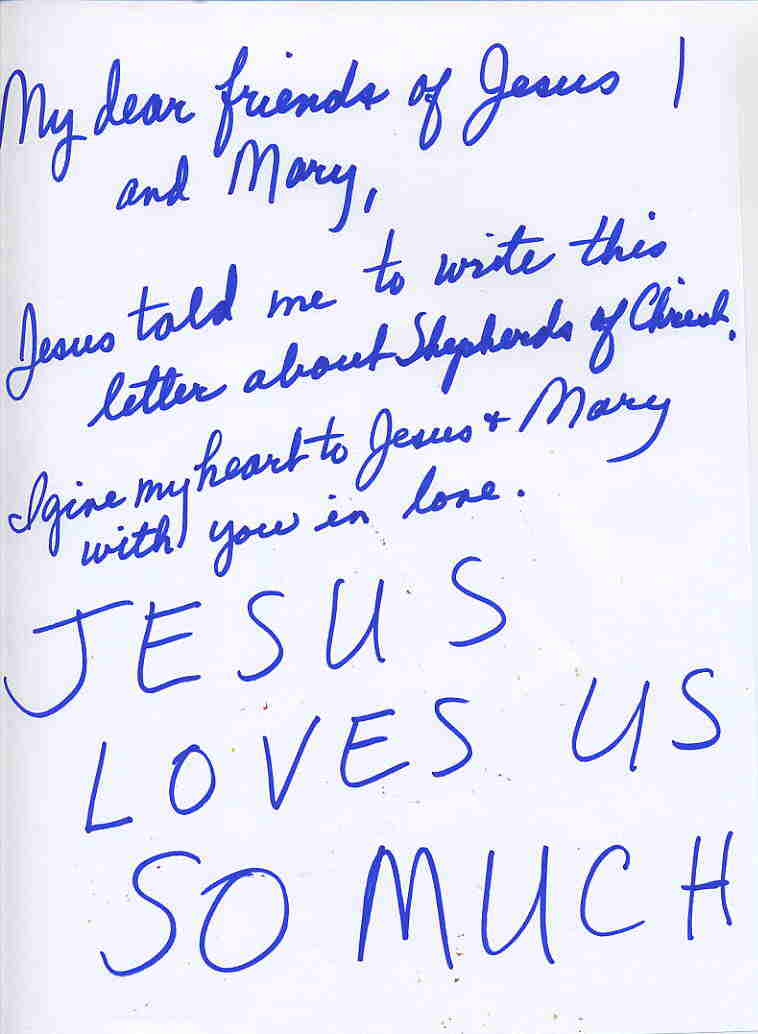 My dear friends of Jesus 1
and Mary,
Jesus told me to write this
letter about Shepherds of Christ.
I give my heart to Jesus + Mary
with you in love.
JESUS
LOVES US
SO MUCH